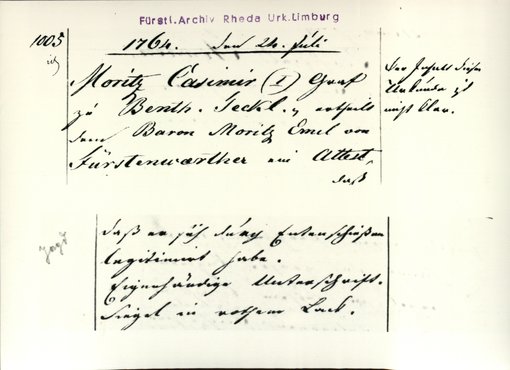 Fürstl. Archiv Rheda Urk. Limburg
1005
1764. den 24. Juli
Moritz Casimir (I) Graf
zu Benth. Teckl., ertheilt
dem Baron Moritz Emil von
Fürstenwærther ein Attest,
daß
Der Inhalt dieser
Urkunde ist
nicht klar.
daß er sich durch Entenschießen
legitimirt habe.
Eigenhändige Unterschrift.
Siegel in rothem Lack.
Jagd